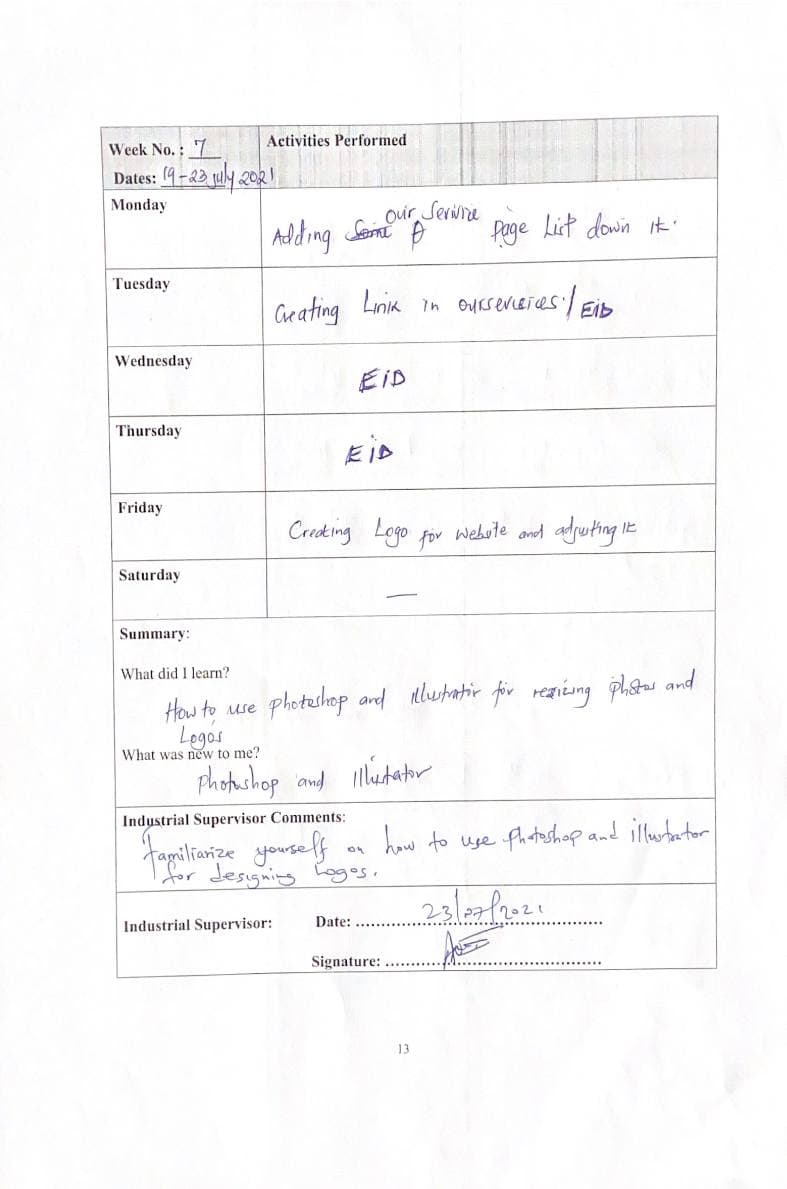 Week No. : 7
Activities Performed
Dates: 19-23 july 2021
Monday
Adding our Service Page List down it.
Tuesday
Creating Link in ourserveices / Eid
Wednesday
EiD
Thursday
EiD
Friday
Creating Logo for website and adjusting it
Saturday
—
Summary:
What did I learn?
How to use photoshop and illustrator for resizing photos and
Logos
What was new to me?
photoshop and Illustator
Industrial Supervisor Comments:
familiarize yourself on how to use photoshop and illustrator
for designing Logos.
Industrial Supervisor:
Date: 23/07/2021
Signature:
13